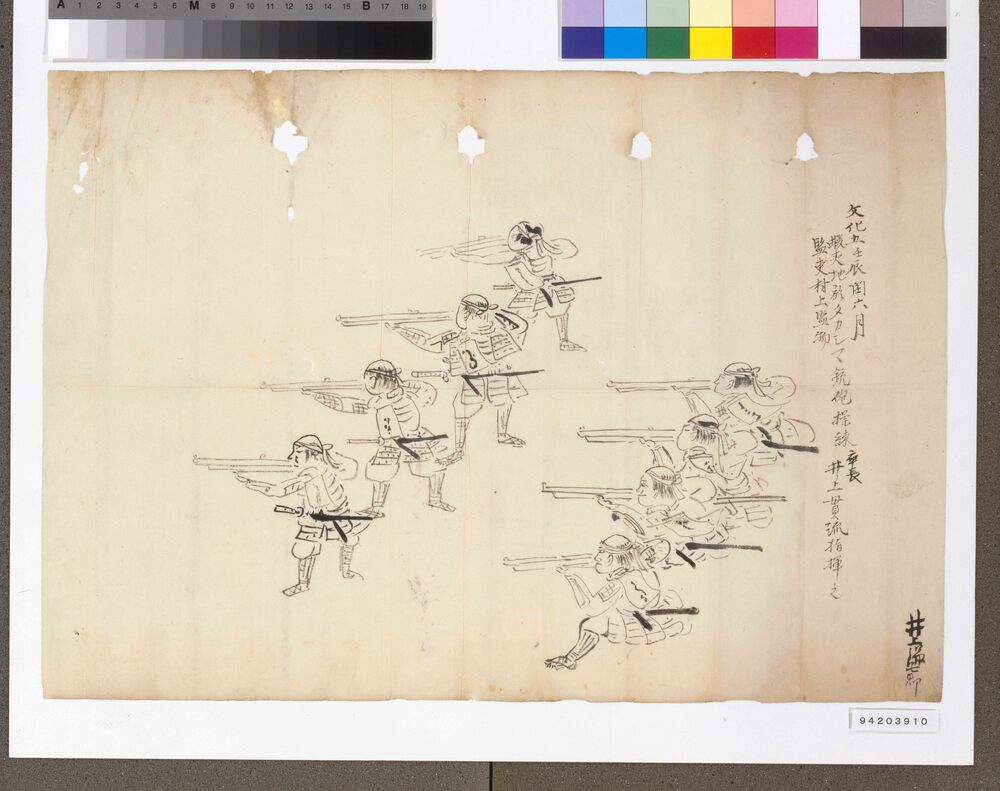 A 1 2 3 4 5 6 M 8 9 10 11 12 13 14 15 B 17 18 19
文化五壬辰閏六月
蝦夷地於タカシマ銃砲操練
井上貫流指揮之
監吏村上監物
井上
94203910